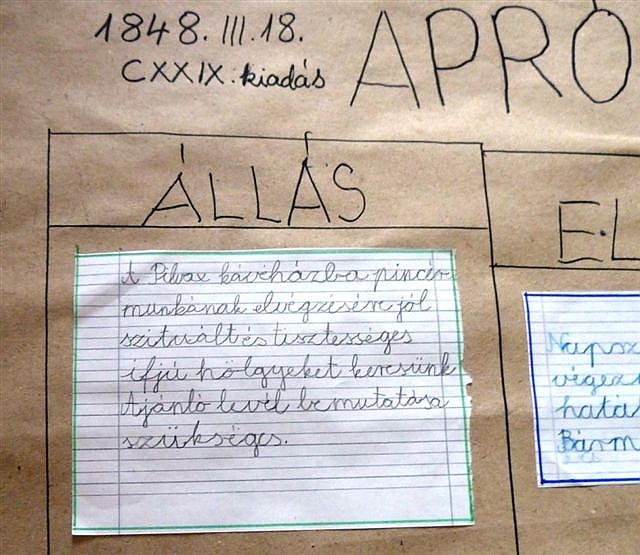 1848. III. 18.
CXXIX. kiadás
APRÓ
ÁLLÁS
A Pilvax kávéházba pincér
munkának elvégzésére jól
szituált és tisztességes
ifjú hölgyeket keresünk
Ajánló levél bemutatása
szükséges.
E.L
Napsz
végezn
hatá
Bárm